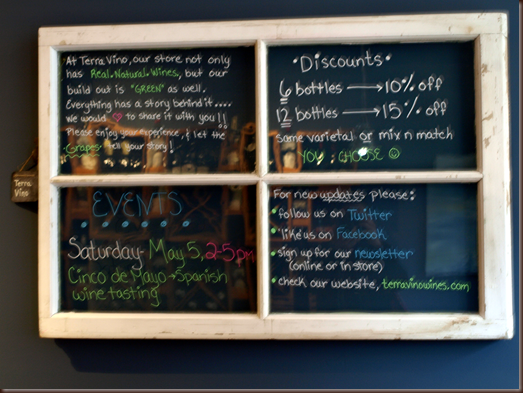 At Terra Vino, our store not only
has Real. Natural. Wines, but our
build out is "GREEN" as well.
Everything has a story behind it....
We would to share it with you!!
Please enjoy your exprience, & let the
Grapes tell your story!
• Discounts •
6 bottles → 10% off
12 bottles → 15% off
same varietal or mix n match
YOU CHOOSE ☺
EVENTS
Saturday May 5, 2-5pm
Cinco de Mayo → Spanish
wine tasting
For new updates please:
• follow us on Twitter
• like us on Facebook
• sign up for our newsletter
(online or in store)
• check our website, terravinowines.com
Terra
Vino